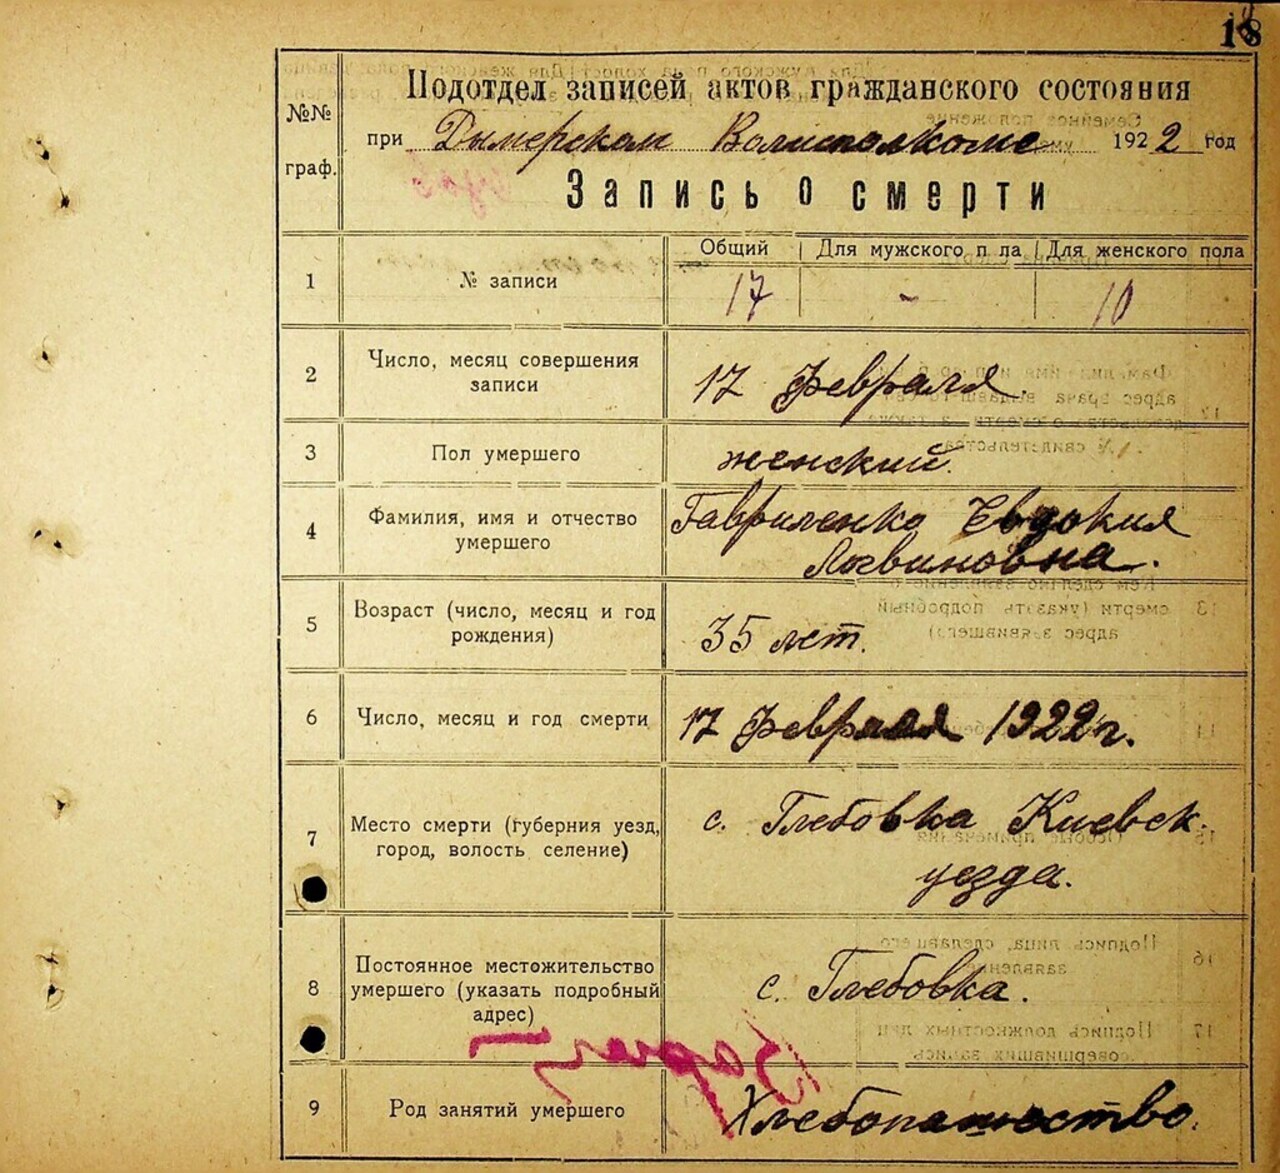 18
№№ граф.
Подотдел записей актов гражданского состояния
при Дымерском Волисполкоме 1922 год
Запись о смерти
1 № записи
Общий Для мужского п ла Для женского пола
17 - 10
2 Число, месяц совершения
записи
17 февраля.
3 Пол умершего женский.
4 Фамилия, имя и отчество
умершего
Гавриленко Евдокия
Логвиновна.
5 Возраст (число, месяц и год
рождения)
35 лет.
6 Число, месяц и год смерти 17 февраля 1922 г.
7 Место смерти (губерния уезд,
город, волость селение)
с. Глебовка Киевск.
уезда.
8 Постоянное местожительство
умершего (указать подробный
адрес)
с. Глебовка.
9 Род занятий умершего Хлебопашество.